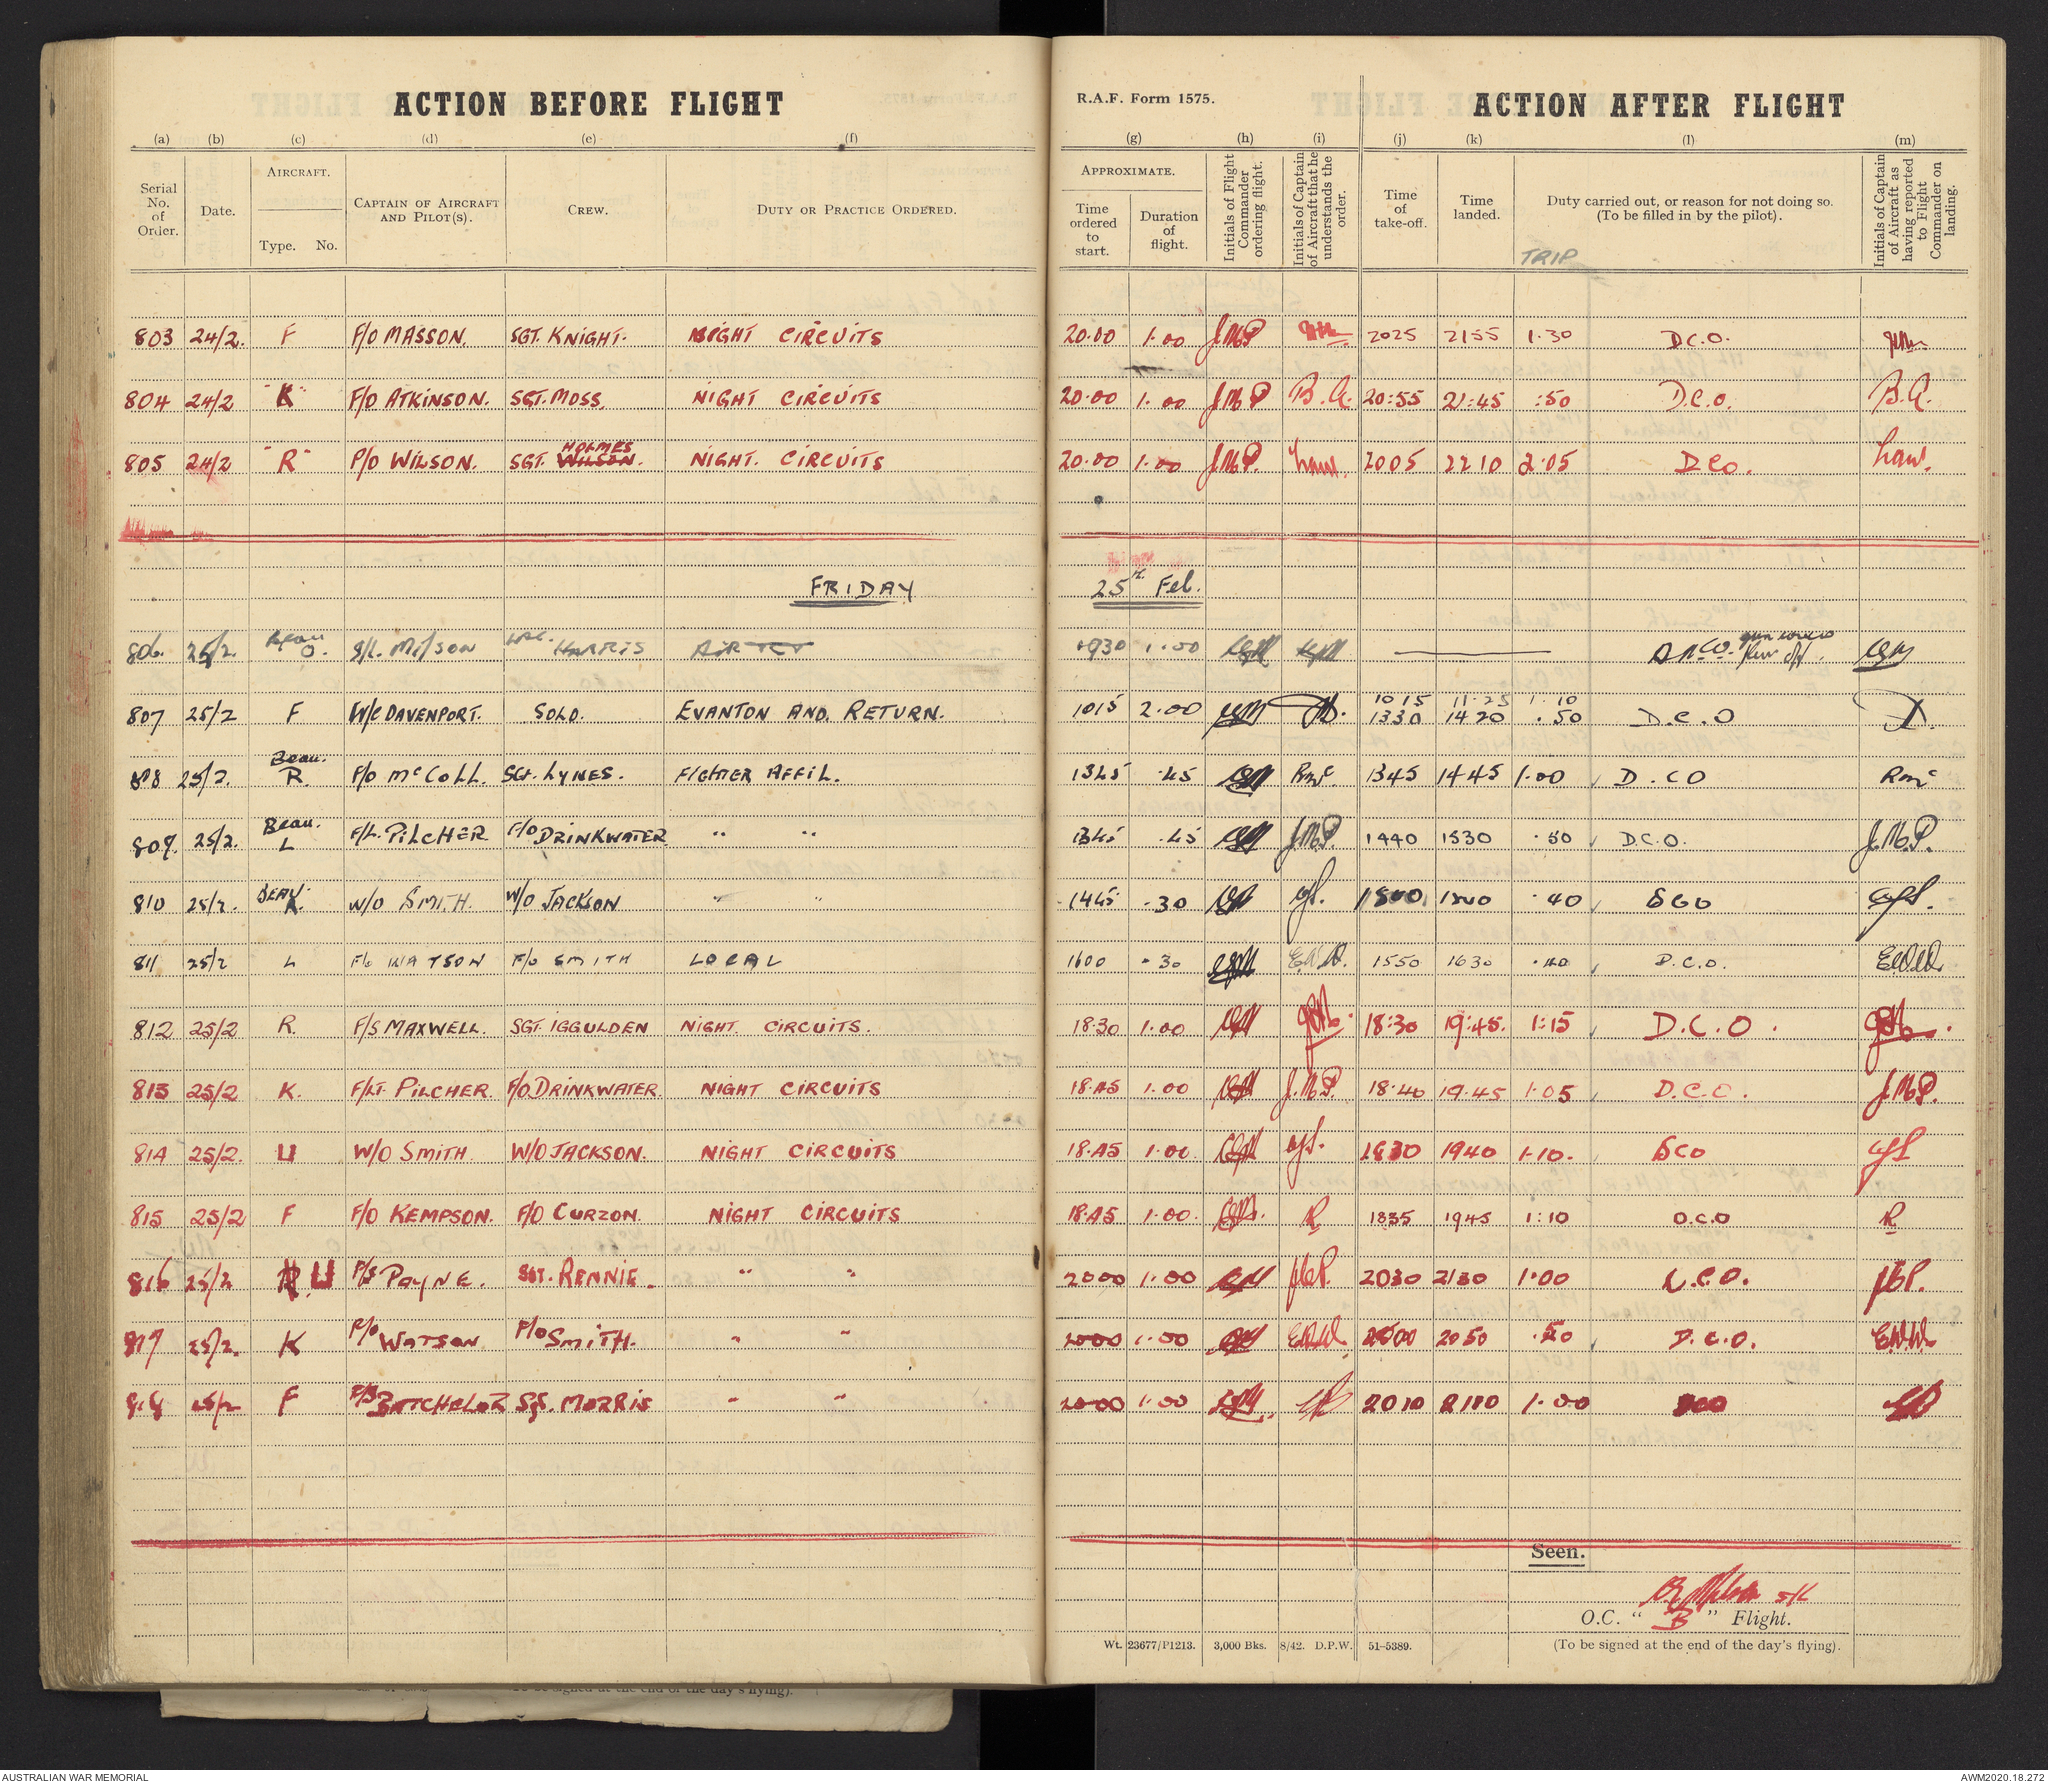 ACTION BEFORE FLIGHT
R.A.F. Form 1575.
ACTION AFTER FLIGHT
(a) (b) (c) (d) (e) (f) (g) (h) (i) (j) (k) (l) (m)
Serial No. of Order.
Date.
AIRCRAFT.
Type. No.
CAPTAIN OF AIRCRAFT AND PILOT(S).
CREW.
DUTY OR PRACTICE ORDERED.
APPROXIMATE.
Time ordered to start.
Duration of flight.
Initials of Flight Commander ordering flight.
Initials of Captain of Aircraft that he understands the order.
Time of take-off.
Time landed.
Duty carried out, or reason for not doing so.
(To be filled in by the pilot).
Initials of Captain of Aircraft as having reported to Flight Commander on landing.
TRIP
803 24/2. F F/O MASSON. SGT. KNIGHT. NIGHT CIRCUITS 20.00 1.00 J.M.P 2025 2155 1.30 D.C.O.
804 24/2 "K" F/O ATKINSON. SGT. MOSS. NIGHT CIRCUITS 20.00 1.00 J.M.P B.A. 20:55 21:45 :50 D.C.O. B.A.
805 24/2 "R" P/O WILSON. SGT. WILSON. HOLMES NIGHT. CIRCUITS 20.00 1.00 J.M.P. 2005 2210 2.05 D.C.O.
FRIDAY 25th Feb.
806 25/2 Beau O. S/L. Milson HARRIS AIR 0930 1.00 D.N.C.O.
807 25/2 F W/C DAVENPORT. SOLO. EVANTON AND RETURN. 1015 2.00 10 15 11.25 1.10
1330 1420 .50 D.C.O
808 25/2. Beau. R. F/O McCOLL. SGT. LYNES. FIGHTER AFFIL. 1345 .45 Rmc 1345 1445 1.00 D.CO Rmc
809. 25/2. Beau. L F/L. PILCHER F/O DRINKWATER " " 1345 .45 J.M.P. 1440 1530 .50 D.C.O. J.M.P.
810 25/2. BEAU. W/O SMITH. W/O JACKSON " " 1445 .30 .40 DCO
811 25/2 L F/O WATSON F/O SMITH LOCAL 1600 .30 E.W.W. 1550 1630 .40 D.C.O. E.W.W.
812 25/2 R. F/S MAXWELL. SGT. IGGULDEN NIGHT. CIRCUITS. 18.30 1.00 18:30 19:45. 1:15 D.C.O.
813 25/2 K. F/LT. PILCHER. F/O. DRINKWATER. NIGHT CIRCUITS 18.45 1.00 J.M.P. 18.40 19.45 1.05 D.C.O. J.M.P.
814 25/2. U W/O SMITH. W/O JACKSON. NIGHT CIRCUITS 18.45 1.00. 1830 1940 1.10. DCO
815 25/2 F F/O KEMPSON. F/O CURZON. NIGHT CIRCUITS 18.45 1.00. 1835 1945 1:10 D.C.O
816 25/2 U F/S PAYNE. SGT. RENNIE. " " 2000 1.00 2030 2130 1.00 D.C.O.
817 25/2. K F/O WATSON F/O SMITH. " " 2000 1.00 E.W.W. 2000 2050 .50 D.C.O. E.W.W.
818 25/2 F F/S BATCHELOR SGT. MORRIS " " 2000 1.00 2010 2110 1.00 DCO
Seen.
S/L
O.C. " B " Flight.
(To be signed at the end of the day's flying).
Wt. 23677/P1213. 3,000 Bks. 8/42. D.P.W. 51-5389.
AUSTRALIAN WAR MEMORIAL
AWM2020.18.272